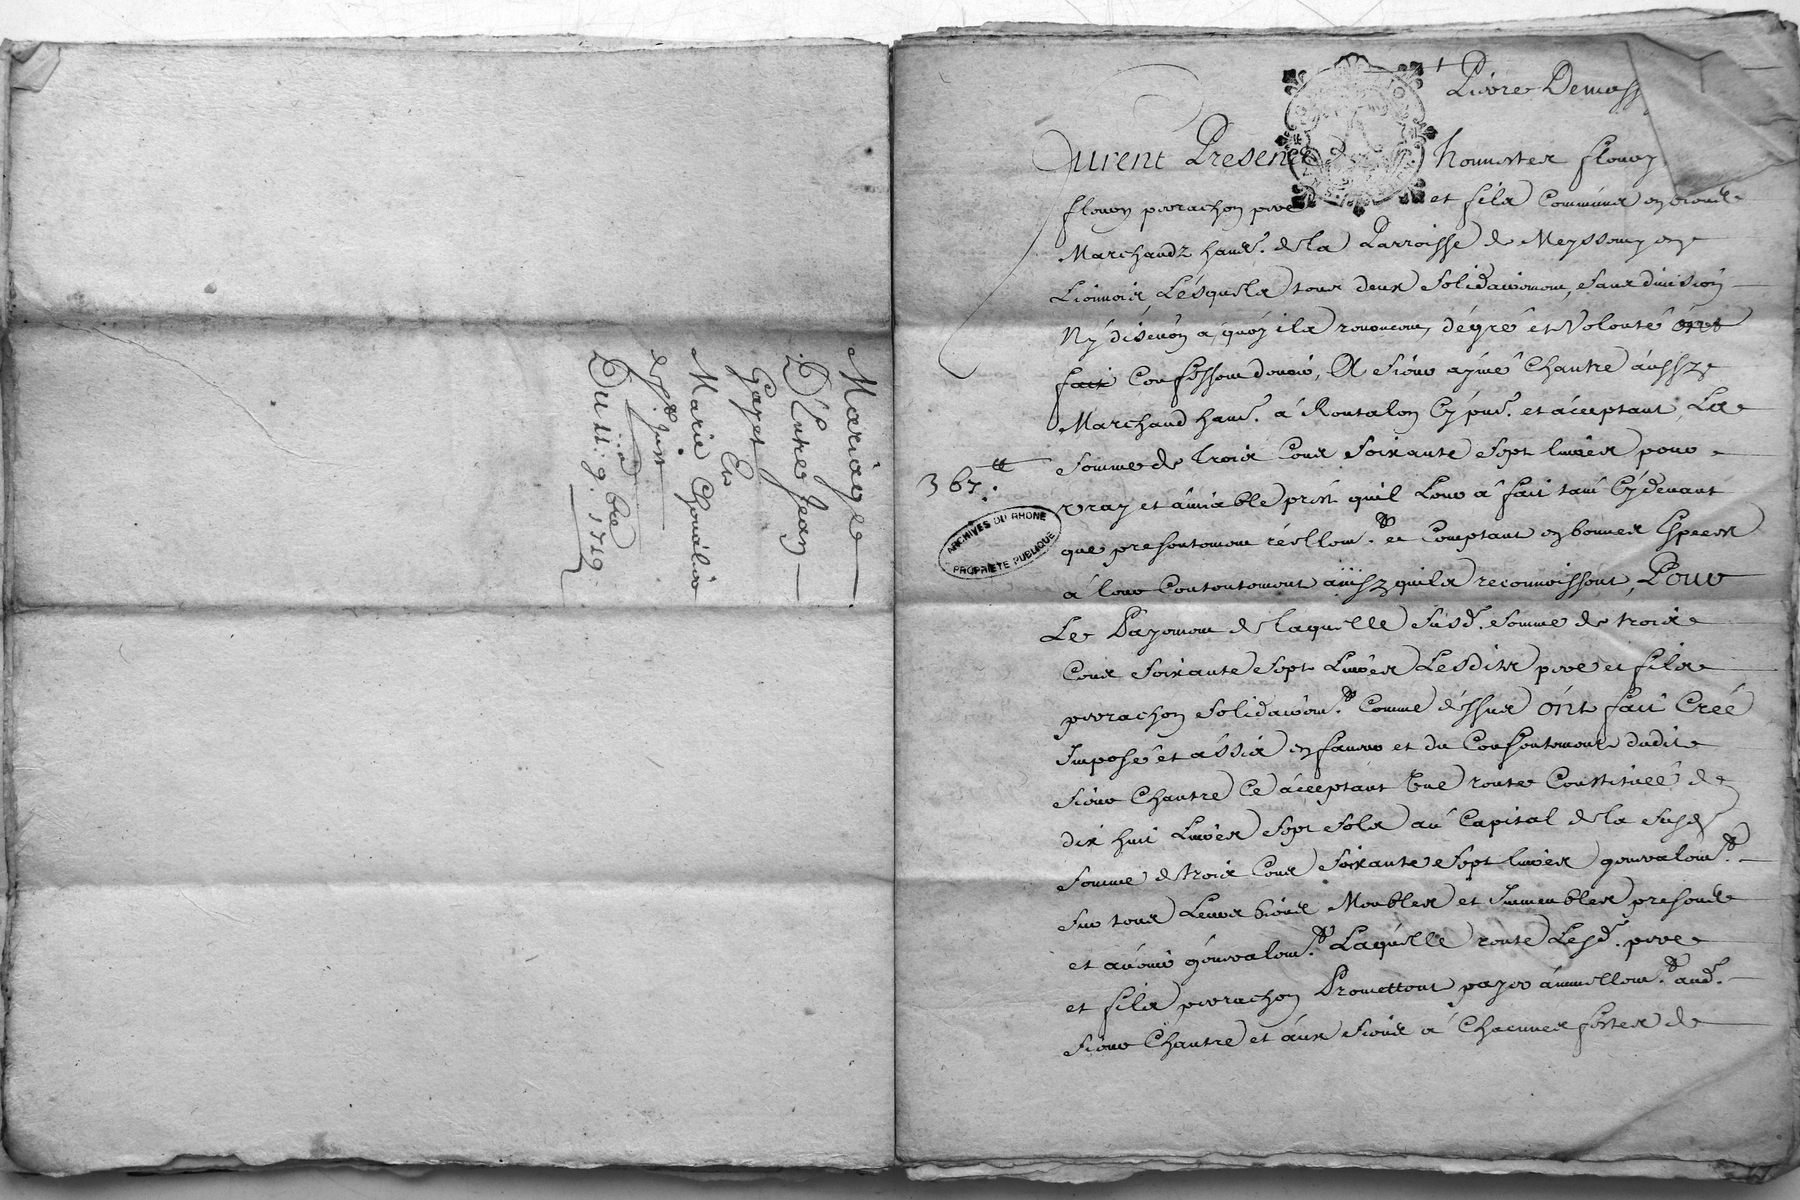 Mariage
D'Entre Jean
Gayet Et
Marie Chevalier
de St. Just
Du 11: 9.bre 1719.
Livre Demass
furent Presence honnestes fleury
fleury perrachon pere et fils Communs en biens
Marchandz hand. de la Parroisse de Meyssemy en
Lionnois Lésquels tous deux solidairement, sans division
Ny disction a quoy ils renoncent, dégré et Volonté ont
fait Confessent devoir, A sieur aymé Chantre aussz
Marchand hand. á Rontalon Cy pnt. et acceptant, La
somme de trois Cens soixante sept livres pour
367.tt
vray et amiable prest quil Leur á fait tant Cydevant
que presentement réellemt. et Comptant en bonnes Especes
ARCHIVES DU RHONE
PROPRIETE PUBLIQUE
á leur Contentement ainsz quils reconnoissent, Pour
Le Payement de laquelle susd. somme de trois
Cens soixante sept Livres Lesdits pere et fils
perrachon solidairemt. Comme déssus ónt fait Créé
Imposé et ássis en faveur et du Consentement dudit
sieur Chantre Ce ácceptant Une rente Constituée de
dix huit Livres sept sols au Capital de la susd
somme de trois Cens soixante sept livres generalemt.
sur tous Leurs biens Meubles et Immeubles presens
et avenir géneralemt. Laquelle rente Lesd. pere
et fils perrachon Promettent payer ánnuellemt. aud.
sieur Chantre et áux siens á Chacunes festes de